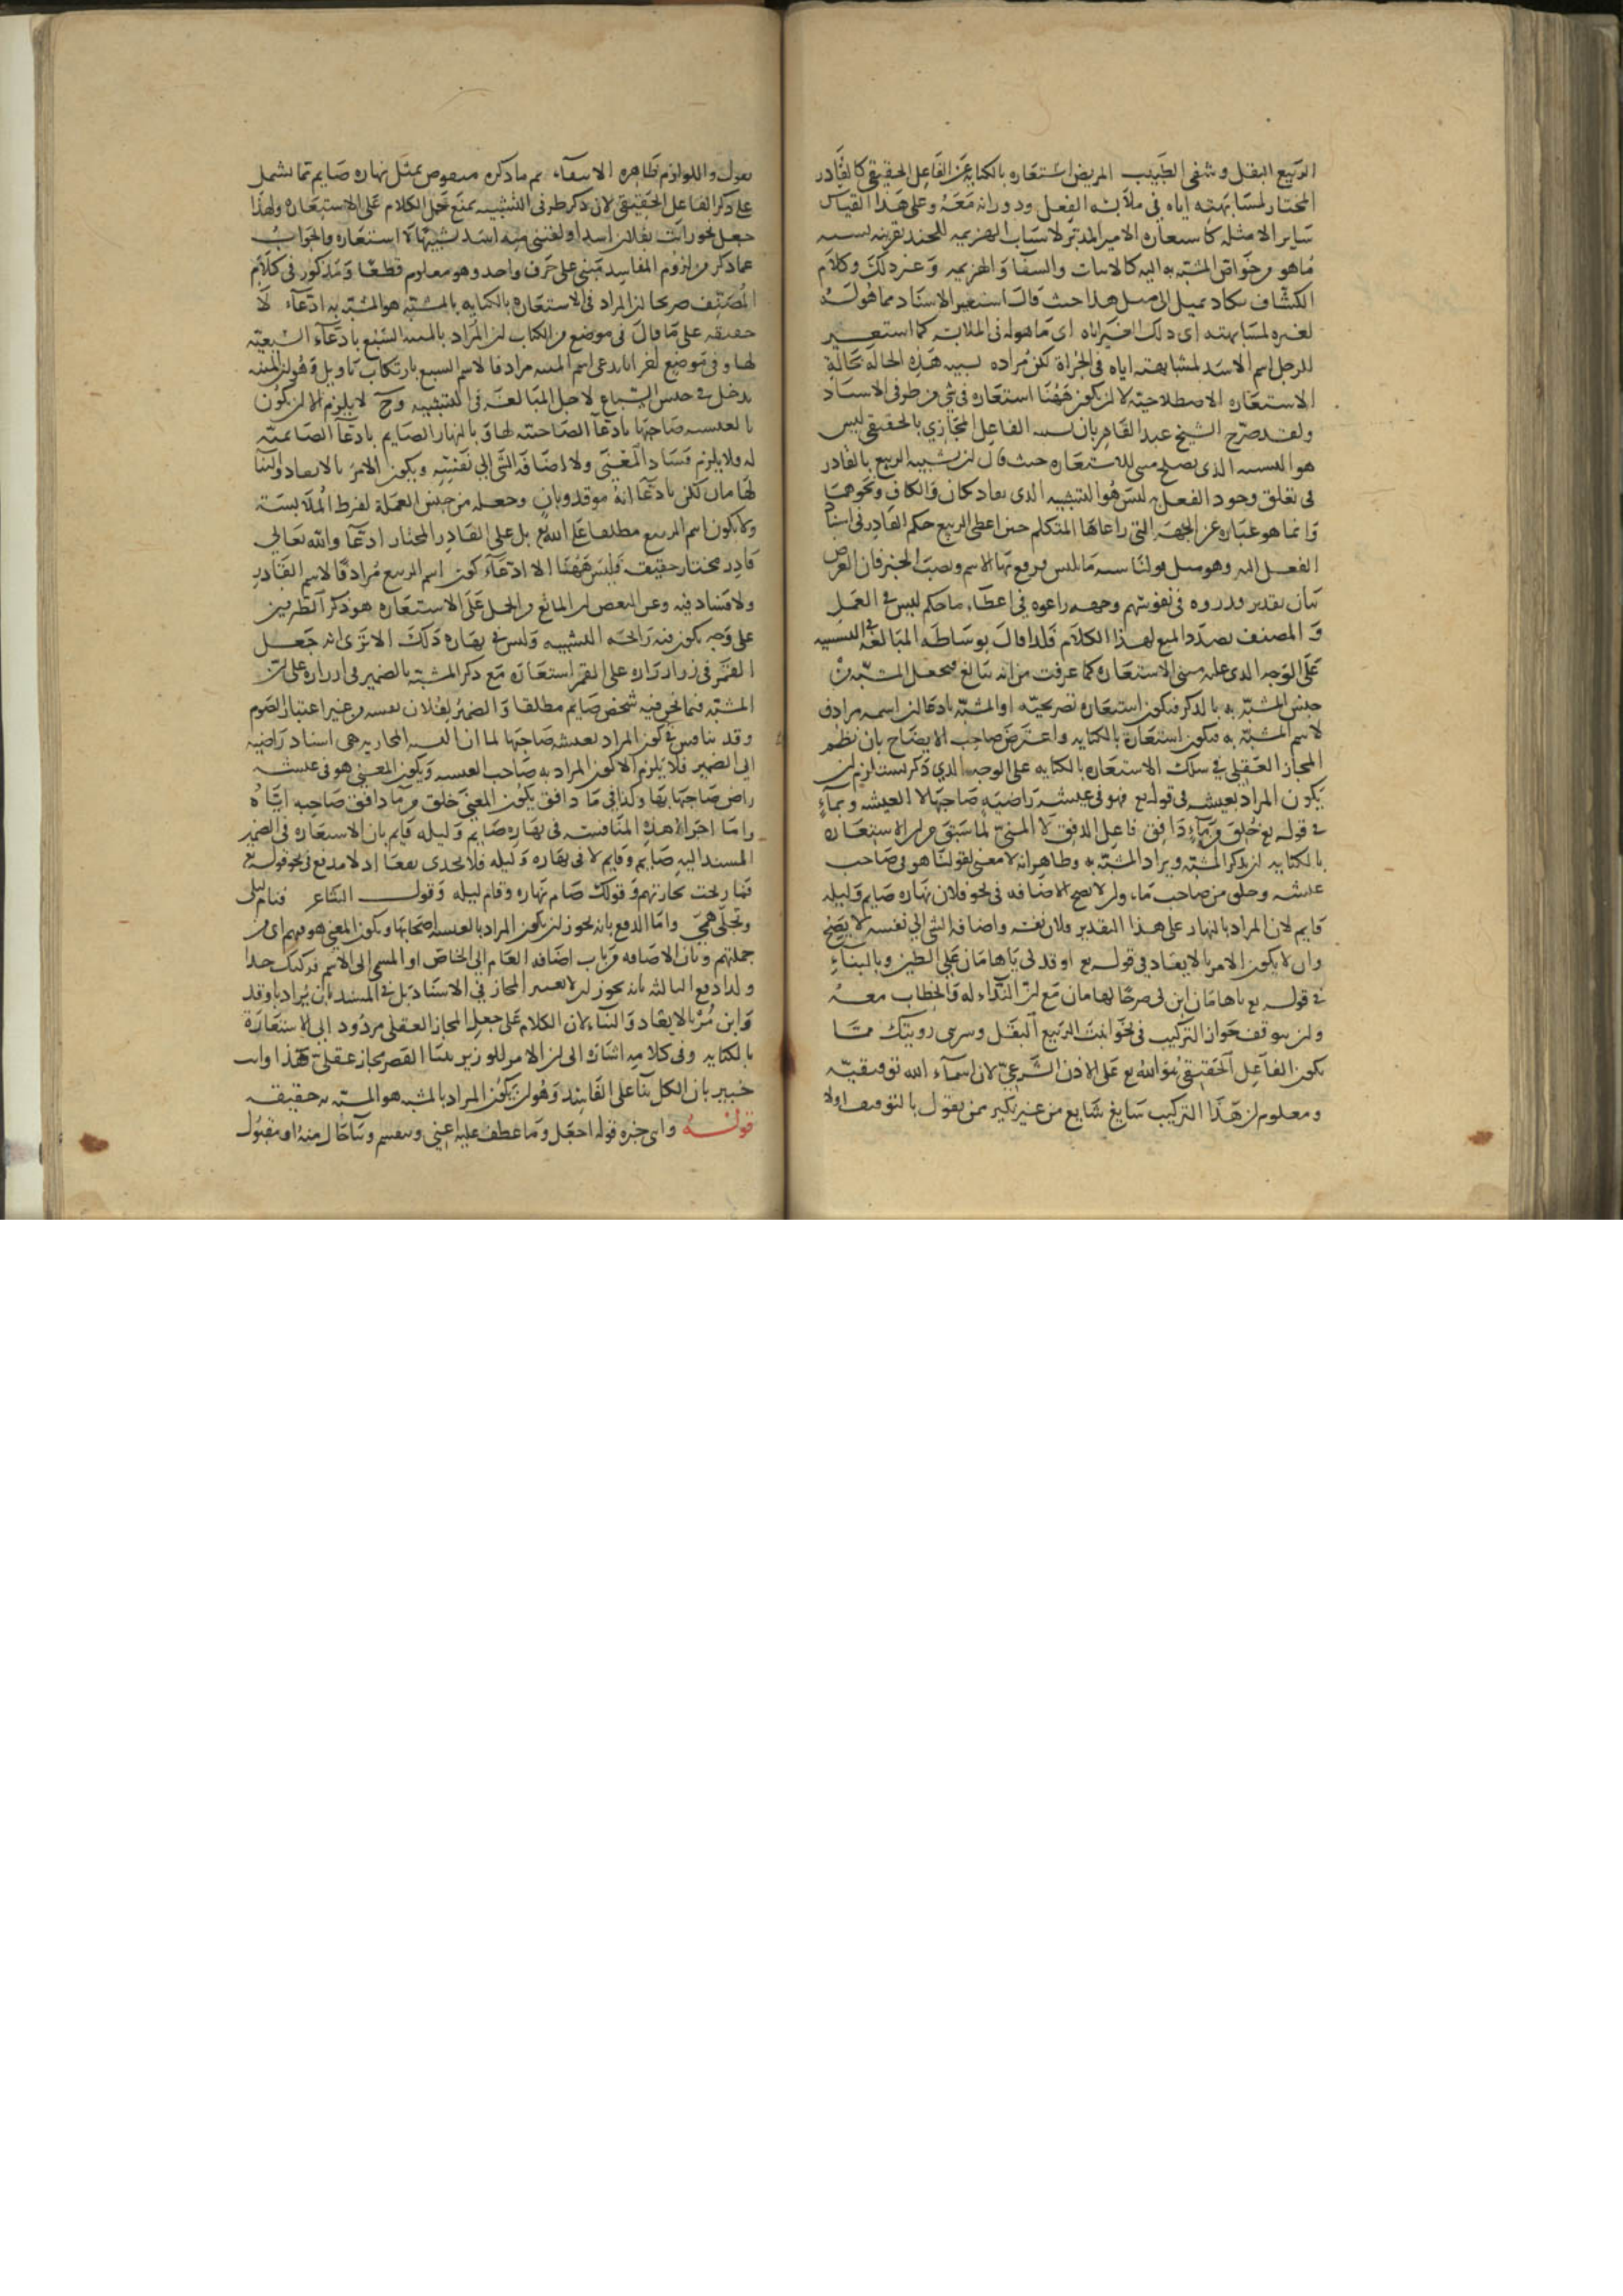 الربيع البقل وشفى الطبيب المريض استعاره بالكنايه عن الفاعل الحقيقي كالقادر
المختار لمشابهته اياه في ملابسة الفعل ودورانه معه وعلى هذا القياس
ساير الامثله كاستعاره الامير المدبر لاسباب الهزيمه للجند بقرينه نسبه
ما هو من خواص المشبه به اليه كالانبات والشفا والهزيمه وغير ذلك وكلام
الكشاف يكاد يميل الى مثل هذا حيث قال استعير الاسناد مما هو له
لغيره لمشابهته اى ذلك الغير اياه اى ما هو له فى الملابسه كما استعير
للرجل اسم الاسد لمشابهته اياه فى الجراة لكن مراده تشبيه هذه الحالة بحالة
الاستعاره الاصطلاحيه لا ان يكون ههنا استعاره في شي من طرفى الاسناد
ولقد صرح الشيخ عبد القاهر بان تشبيه الفاعل المجازي بالحقيقى ليس
هو التشبيه الذى يصلح مبنى للاستعاره حيث قال ان تشبيه الربيع بالقادر
فى تعلق وجود الفعل به ليس هو التشبيه الذى يفاد بكان والكاف ونحوهما
وانما هو عباره عن الجهة التى راعاها المتكلم حين اعطى الربيع حكم القادر فى اسناد
الفعل اليه وهو مثل قولنا شبه ما بليس فرفع بها الاسم ونصب الخبر فان الغرض
بيان تقدير قدروه فى نفوسهم وجهه راعوه فى اعطاء ما حكم ليس فى العمل
والمصنف بصدد المنع لهذا الكلام فلذا قال بوساطه المبالغه فى التشبيه
على الوجه الذى عليه مبنى الاستعاره كما عرفت من انه يبالغ فيجعل المشبه من
جنس المشبه به بالذكر فيكون استعاره تصريحيه او المشبه بادعا ان اسمه مرادف
لاسم المشبه به فيكون استعاره بالكنايه واعترض صاحب الايضاح بان نظم
المجاز العقلي في سلك الاستعاره بالكنايه على الوجه الذي ذكر يستلزم ان
يكون المراد بعيشه فى قوله تع فهو فى عيشه راضيه صاحبها لا العيشه وبماء
فى قوله تع خلق من ماء دافق فاعل الدفق لا المنى لما سبق من ان الاستعاره
بالكنايه ان يذكر المشبه ويراد المشبه به وظاهر انه لا معنى لقولنا هو فى صاحب
عيشه وخلق من صاحب ماء وان لا يصح الاضافه فى نحو فلان نهاره صايم وليله
قايم لان المراد بالنهار على هذا التقدير فلان نفسه واضافه الشى الى نفسه لا يصح
وان لا يكون الامر بالايقاد فى قوله تع اوقد لى يا هامان على الطين وبالبناء
فى قوله تع يا هامان ابن لى صرحا لهامان مع ان النداء له والخطاب معه
وان يتوقف جواز التركيب فى نحو انبت الربيع البقل وسرتنى رؤيتك مما
يكون الفاعل الحقيقى هو الله تع على الاذن الشرعي لان اسماء الله توقيفيه
ومعلوم ان هذا التركيب سايغ شايع من غير نكير ممن يقول بالتوقيف او لا
يقول واللوازم ظاهره الانتفاء ثم ما ذكره منقوض بمثل نهاره صايم مما يشمل
على ذكر الفاعل الحقيقى لان ذكر طرفى التشبيه يمنع حمل الكلام على الاستعاره ولهذا
جعل نحو رايت بفلان اسدا ولقيني منه اسد تشبيها لا استعاره والجواب
عما ذكر من لزوم المفاسد مبنى على حرف واحد وهو معلوم قطعا ومذكور فى كلام
المصنف صريحا ان المراد فى الاستعاره بالكنايه بالمشبه هو المشبه به ادعاء لا
حقيقه على ما قال فى موضع من الكتاب ان المراد بالمنيه السبع بادعاء السبعيه
لها وفى موضع اخر انا ندعى اسم المنيه مرادفا لاسم السبع بارتكاب تاويل وهو ان المنيه
يدخل فى جنس السباع لاجل المبالغه فى التشبيه وح لا يلزم الا ان يكون
بالعيشه صاحبها بادعا الصاحبيه لها وبالنهار الصايم بادعا الصائميه
له ولا يلزم فساد المعنى ولا اضافه الشى الى نفسه ويكون الامر بالايقاد والبنا
لهامان لكن بادعا انه موقد وبان وجعله من جنس العمله لفرط الملابسه
ولا يكون اسم الربيع مطلقا على الله تع بل على القادر المختار ادعا والله تعالى
قادر مختار حقيقه فليس ههنا الا ادعاء كون اسم الربيع مرادفا لاسم القادر
ولا فساد فيه وعن النقض ان المانع من الحمل على الاستعاره هو ذكر الطرفين
على وجه يكون فيه رائحه التشبيه وليس فى نهاره ذلك الا ترى انه جعل
القمر فى زر ازراره على القمر استعاره مع ذكر المشبه بالضمير فى ازراره على ان
المشبه فيما نحن فيه شخص صايم مطلقا والضمير لفلان نفسه من غير اعتبار الصوم
وقد يناقش فى كون المراد بعيشه صاحبها لما ان النسبه المجازيه هى اسناد راضيه
الى الضمير فلا يلزم الا كون المراد به صاحب العيشه ويكون المعنى هو فى عيشه
راض صاحبها بها وكذا فى ماء دافق يكون المعنى خلق من ماء دافق صاحبه اياه
واما اجراء هذه المناقشه فى نهاره صايم وليله قايم بان الاستعاره فى الضمير
المسند اليه صايم وقايم لا فى نهاره وليله فلا يجدى نفعا اذ لا مدفع فى نحو قوله تع
فما ربحت تجارتهم وقولك صام نهاره وقام ليله وقول الشاعر فنام ليلى
وتجلى همى واما الدفع بانه يجوز ان يكون المراد بالعيشه اصحابها ويكون المعنى هو فيهم اى من
جملتهم وبان الاضافه من باب اضافه العام الى الخاص او المسمى الى الاسم فركيك جدا
وكذا دفع الثالث بانه يجوز ان لا يعتبر المجاز فى الاسناد بل فى المسند بان يراد باوقد
وابن مر بالايقاد والبناء لان الكلام على جعل المجاز العقلى مردود الى الاستعارة
بالكنايه وفى كلامه اشارة الى ان الامر للوزير ببنا القصر مجاز عقلى هذا وانت
خبير بان الكل بناء على الفاسد وهو ان يكون المراد بالمشبه هو المشبه به حقيقه
قوله واى خبره قوله اجعل وما عطف عليه اعنى وينقسم وشاحال منه او مفعول